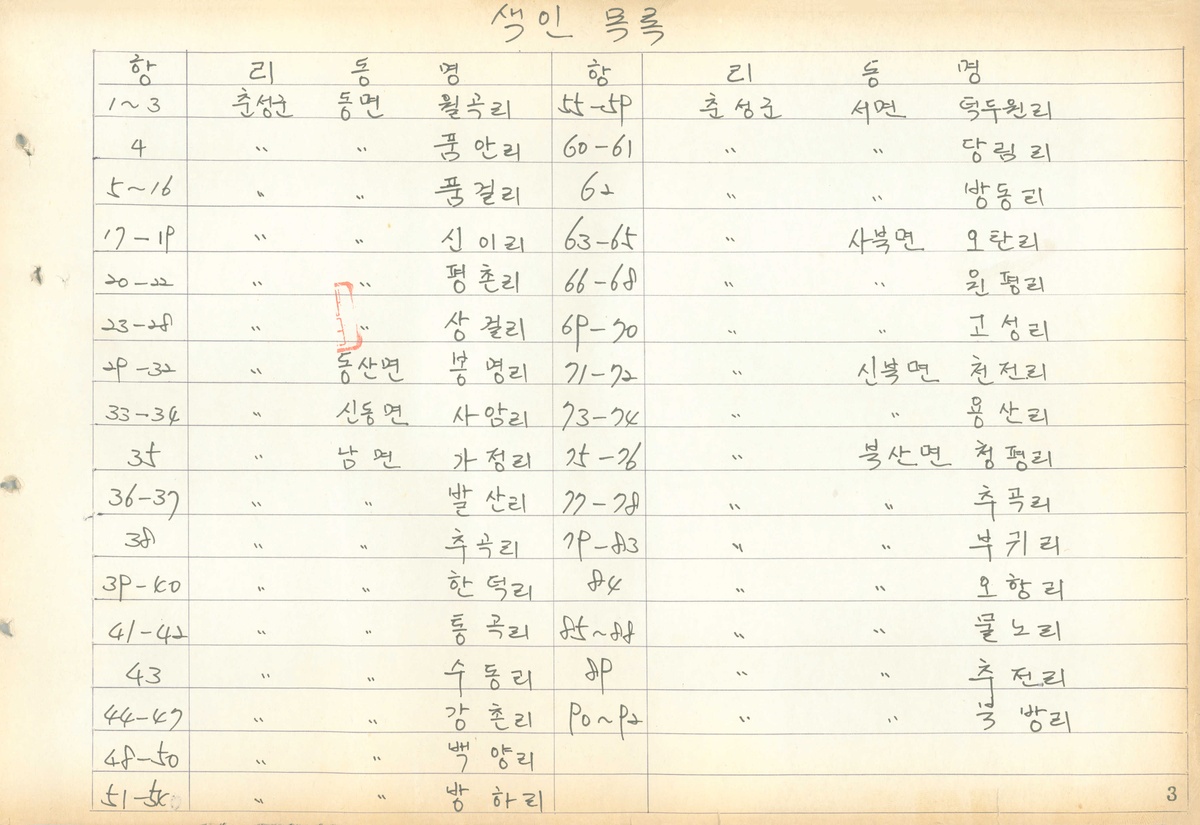 색인 목록
항 리 동 명 항 리 동 명
1~3 춘성군 동면 월곡리 55-59 춘성군 서면 덕두원리
4 〃 〃 품안리 60-61 〃 〃 당림리
5~16 〃 〃 품걸리 62 〃 〃 방동리
17-19 〃 〃 신이리 63-65 〃 사북면 오탄리
20-22 〃 〃 평촌리 66-68 〃 〃 원평리
23-28 〃 〃 상걸리 69-70 〃 〃 고성리
29-32 〃 동산면 봉명리 71-72 〃 신북면 천전리
33-34 〃 신동면 사암리 73-74 〃 〃 용산리
35 〃 남면 가정리 75-76 〃 북산면 청평리
36-37 〃 〃 발산리 77-78 〃 〃 추곡리
38 〃 〃 추곡리 79-83 〃 〃 부귀리
39-40 〃 〃 한덕리 84 〃 〃 오항리
41-42 〃 〃 통곡리 85~88 〃 〃 물노리
43 〃 〃 수동리 89 〃 〃 추전리
44-47 〃 〃 강촌리 90~92 〃 〃 북방리
48-50 〃 〃 백양리
51-54 〃 〃 방하리
3